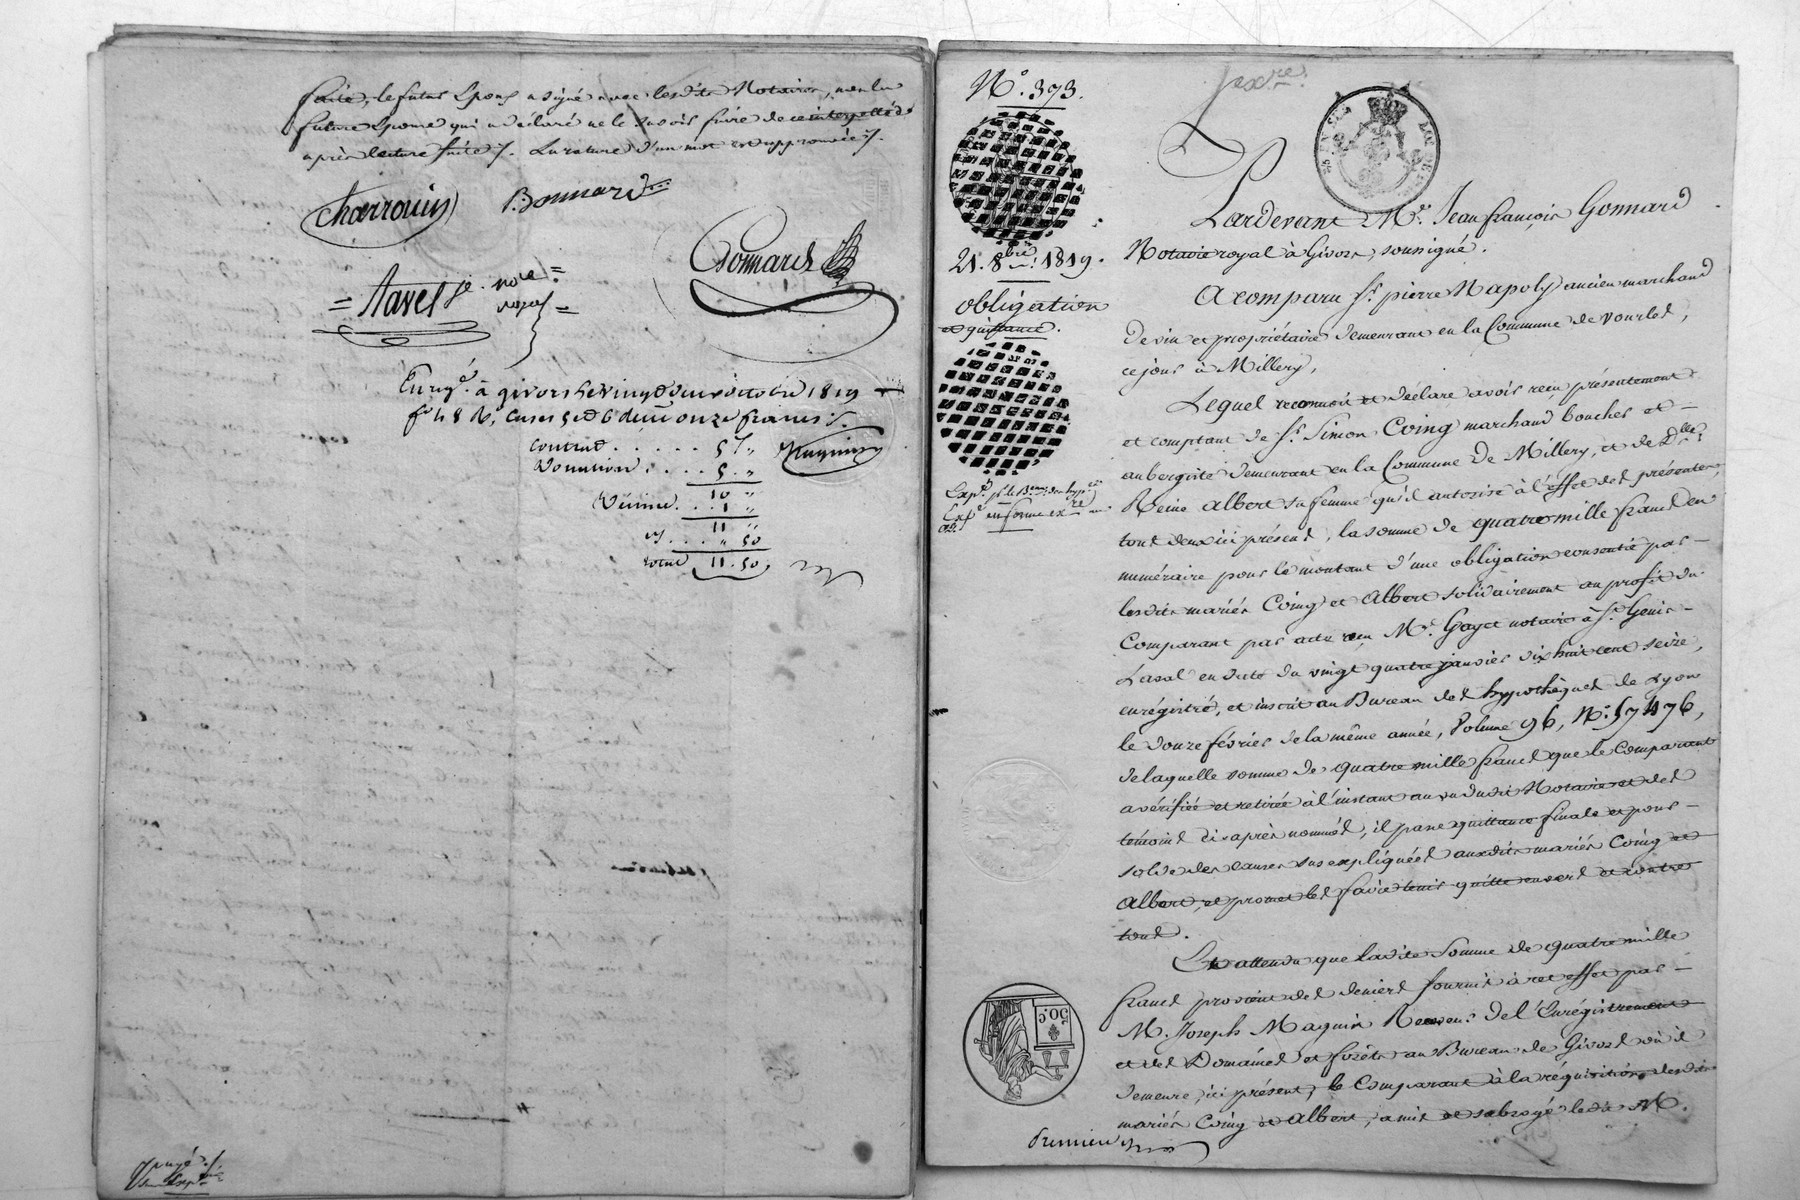 faite, le futur Epoux a signé avec lesdits Notaires, non la
future Epouse qui a déclaré ne le savoir faire de ce interpellée
après lecture faite ./. La rature d'un mot est approuvée ./.
Charrouin Bonnard
Gonnard
= Navel je. nore =
royal =
Enregé. à givors le vingt deux octobre 1819
fo 48 Ro, Cases 5 et 6 deux onze francs ./.
Contrat . . . . . 5 ",,
Donation . . . . 5 . ",
10 ",
Dixième . . . 1 ",
11 ",
. . . " 50
total 11 . 50
Maguin
payé
No. 373.
21. 8bre. 1819.
obligation
et quittance.
Expé. en forme exre
50.c
Pardevant Me. Jean françois Gonnard
Notaire royal à Givors, soussigné.
A comparu Sr. pierre Napoly ancien marchand
de vin et propriétaire demeurant en la Commune de vourles,
ce jour à Millery,
Lequel reconnoit et déclare avoir reçu présentement
et comptant de Sr. Simon Coing marchand boucher et -
aubergiste demeurant en la Commune de Millery, et de Dlle.
Reine Albert sa femme qu'il autorise à l'effet des présentes,
tous deux ici présens, la somme de quatre mille francs en
numéraire pour le montant d'une obligation consentie par -
lesdits mariés Coing et Albert solidairement au profit du
Comparant par acte reçu Me. Gayet notaire à St. Genis -
Laval en date du vingt quatre janvier dix huit cent seize,
enrégistré, et inscrit au Bureau des hypothèques de Lyon
le douze février de la même année, Volume 96, No. 57476,
de laquelle somme de quatre mille francs que le Comparant
a vérifiée et retirée à l'instant au vu dudit Notaire et des
témoins ci-après nommés, il passe quittance finale et pour -
solde des causes sus expliquées auxdits mariés Coing et
Albert, et promet les faire tenir quitte envers et contre
tous.
Et attendu que ladite Somme de quatre mille
francs provient des deniers fournis à cet effet par -
M. Joseph Maguin Receveur de l'Enrégistrement
et des Domaines et forêts au Bureau de Givors où il
demeure, ici présent, le Comparant à la réquisition desdits
mariés Coing et Albert, a mis et subrogé ledit M.
premier